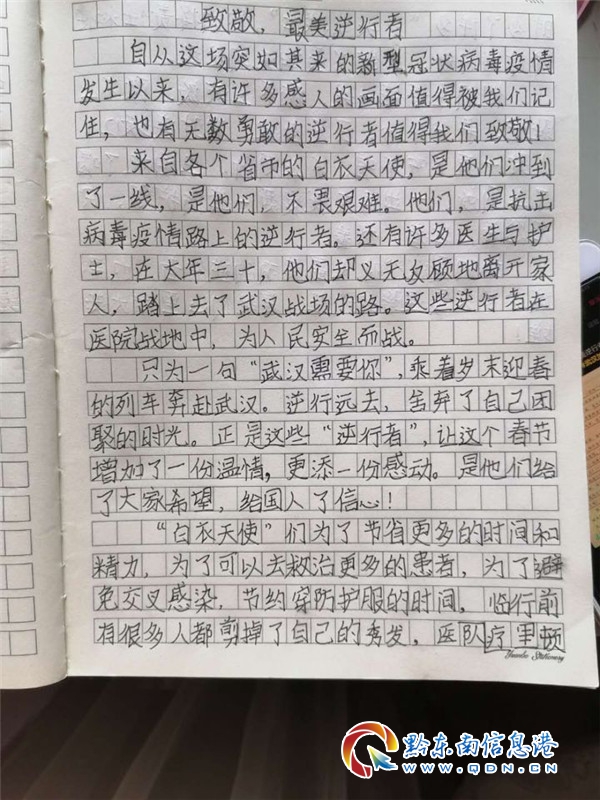 致敬，最美逆行者
自从这场突如其来的新型冠状病毒疫情
发生以来，有许多感人的画面值得被我们记
住，也有无数勇敢的逆行者值得我们致敬！
来自各个省市的白衣天使，是他们冲到
了一线，是他们，不畏艰难。他们，是抗击
病毒疫情路上的逆行者。还有许多医生与护
士，在大年三十，他们却义无反顾地离开家
人，踏上去了武汉战场的路。这些逆行者在
医院战地中，为人民安全而战。
只为一句“武汉需要你”，乘着岁末迎春
的列车奔赴武汉。逆行远去，舍弃了自己团
聚的时光。正是这些“逆行者”，让这个春节
增加了一份温情，更添一份感动。是他们给
了大家希望，给国人了信心！
“白衣天使”们为了节省更多的时间和
精力，为了可以去救治更多的患者，为了避
免交叉感染，节约穿防护服的时间，临行前
有很多人都剪掉了自己的秀发，医队疗里顿
Yuanbo Stationery
黔东南信息港
WWW.QDN.CN